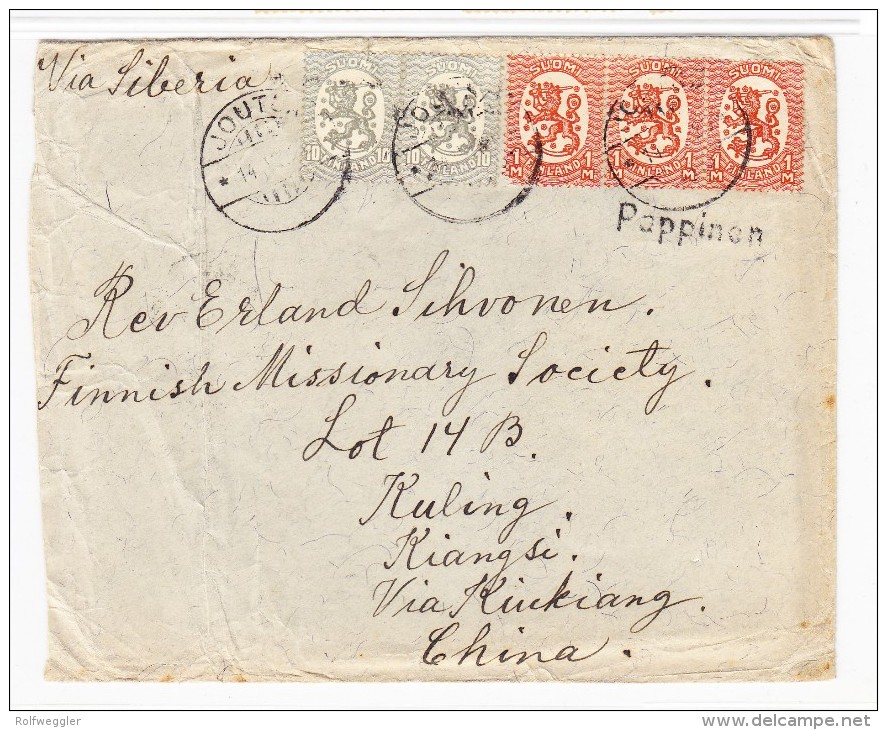 Via Siberia
JOUTS
14
SUOMI SUOMI SUOMI SUOMI SUOMI
10 10 10 10 1 1 1 1 1 1
FINLAND FINLAND M FINLAND M M FINLAND M M FINLAND M
Pappinen
Rev Erland Sihvonen.
Finnish Missionary Society.
Lot 14 B.
Kuling.
Kiangsi.
Via Kiukiang.
China.
Rolfweggler
www.delcampe.net